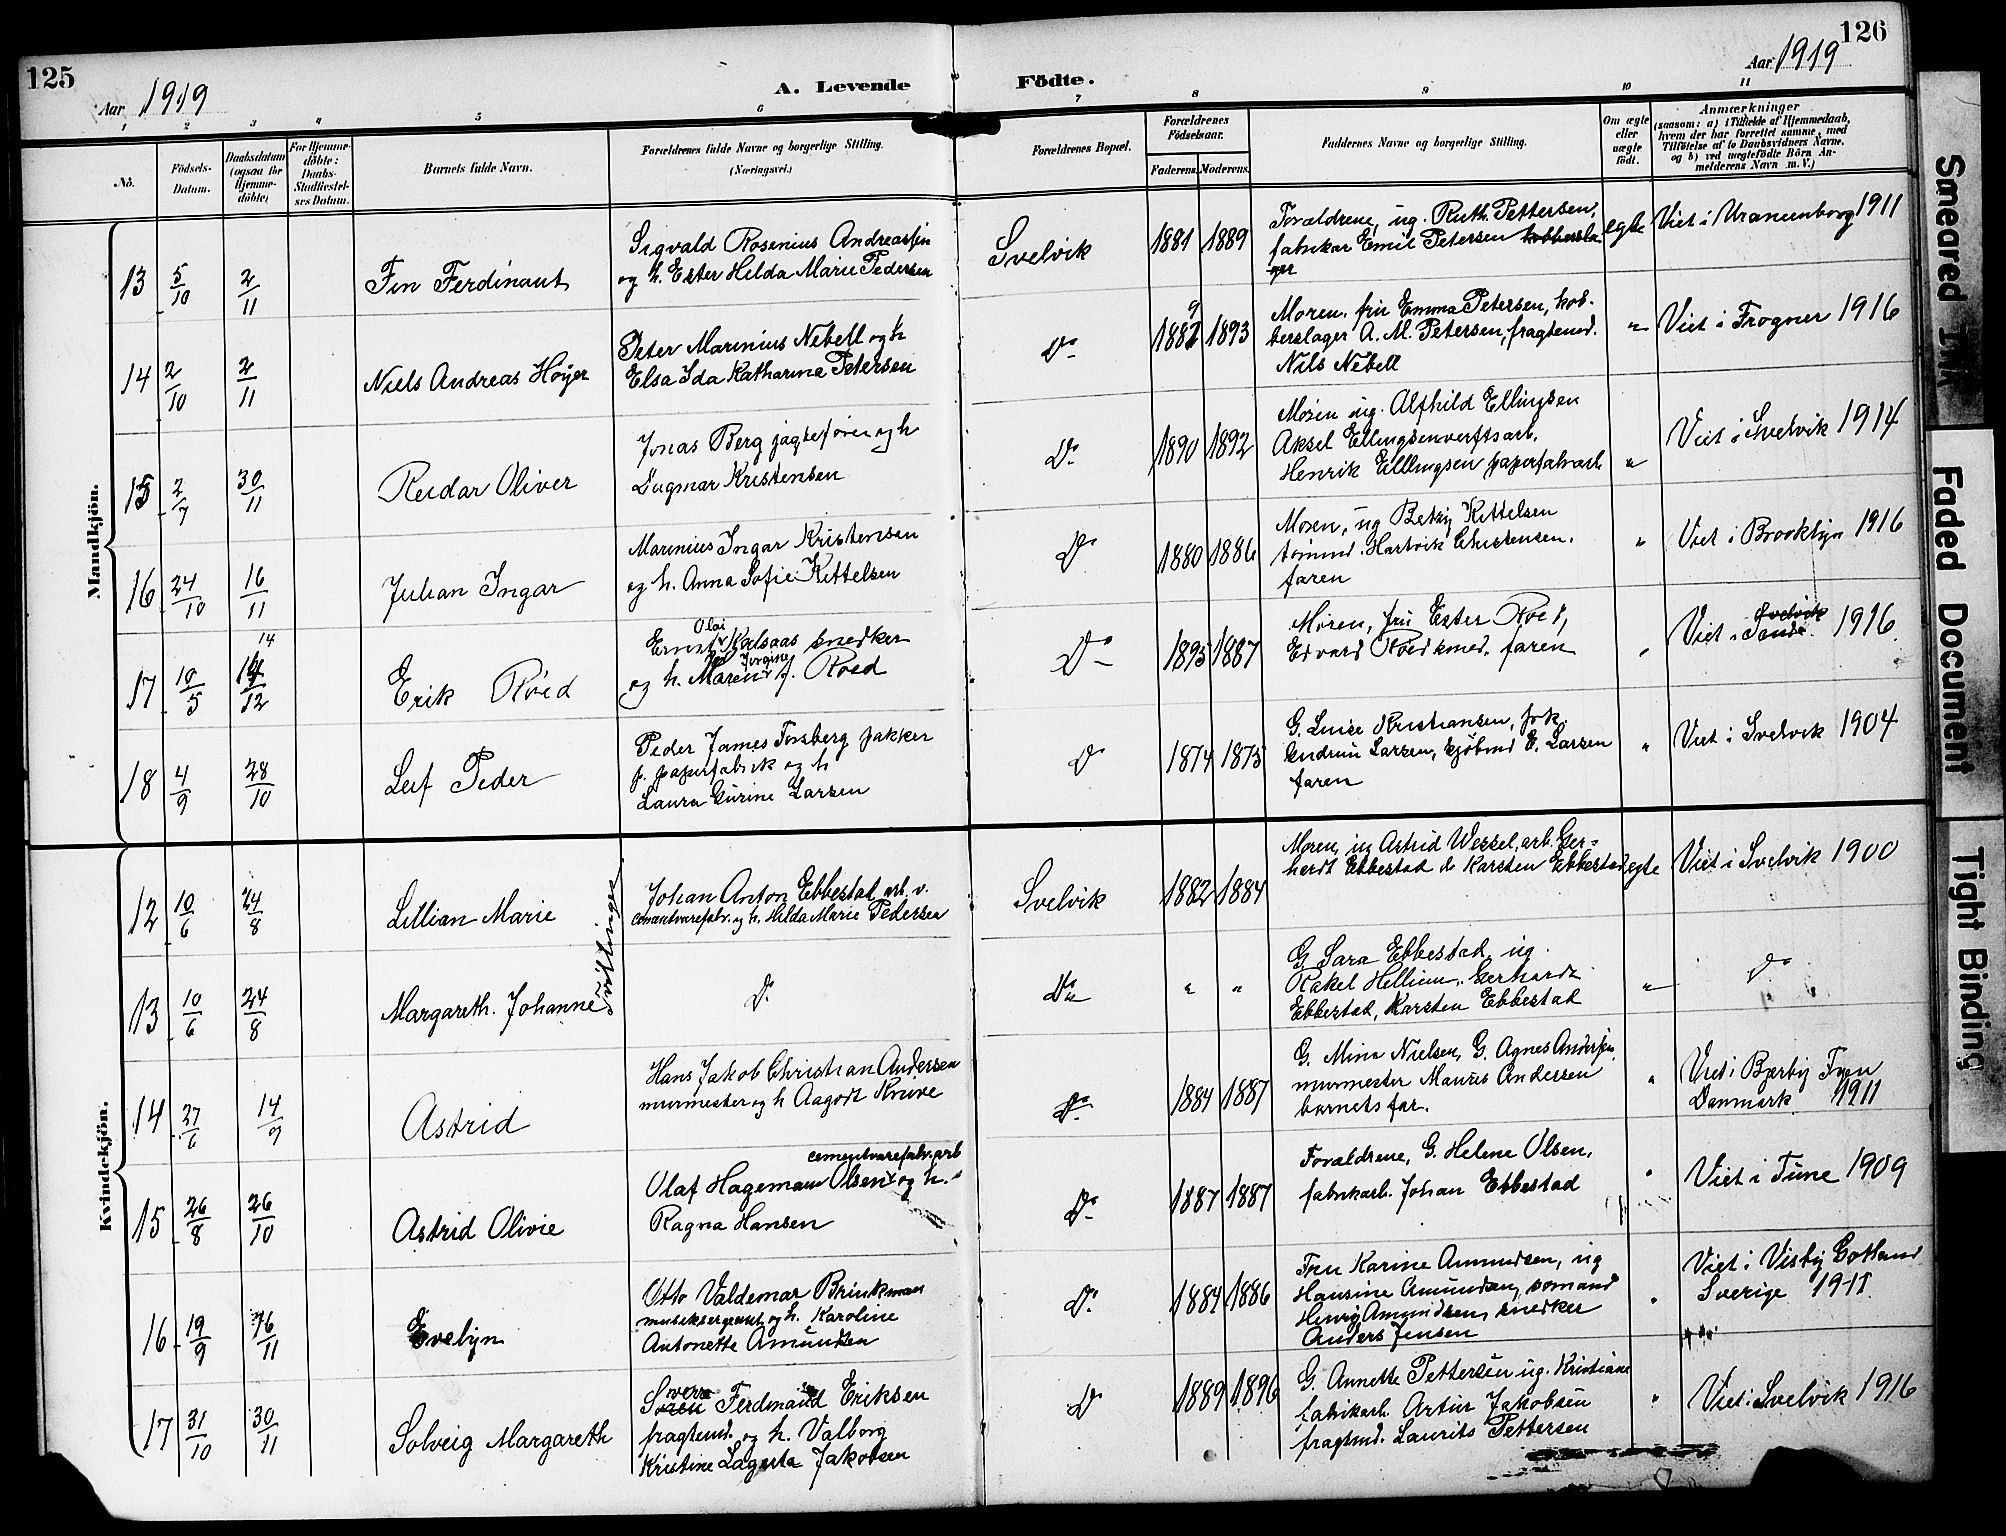 125
126
Aar 1919
A. Levende
Födte.
Aar 1919
1 2 3 4 5 6 7 8 9 10 11
No.
Födsels-
Datum.
Daabsdatum
(ogsaa for
Hjemme-
döbte)
For Hjemme-
döbte:
Daabs-
Stadfæstel-
ses Datum.
Barnets fulde Navn.
Forældrenes fulde Navne og borgerlige Stilling.
(Næringsvei.)
Forældrenes Bopæl.
Forældrenes
Födselsaar.
Faderens. Moderens.
Faddernes Navne og borgerlige Stilling.
Om ægte
eller
uægte
födt.
Anmærkninger
(saasom: a) i Tilfælde af Hjemmedaab,
hvem der har forrettet samme, med
Tilföielse af to Daabsvidners Navne,
og b) ved uægtefödte Börn An-
melderens Navn m. V.)
Mandkjön.
13 5/10 2/11 Fin Ferdinant
Sigvald Rosenius Andreassen
og h. Ester Helda Marie Pedersen
Svelvik 1881 1889
Forældrene, ug. Ruth Pettersen,
fabrikar Emil Petersen kobbersla
ger
egte Viet i Uranienborg 1911
14 2/10 2/11 Niels Andreas Hoyer
Peter Marinius Nebell og h
Elsa Ida Katharina Petersen
Do 1889 1893
Moren, fru Emma Petersen, kob-
berslager A. M. Petersen, fragtemd.
Nils Nebell
" Viet i Frogner 1916
15 2/7 30/11 Reidar Oliver
Jonas Berg jagtefører og h
Dagmar Kristensen
Do 1890 1892
Moren ug. Alfhild Ellingsen
Aksel Ellingsen verftsarb.
Henrik Ellingsen papirfabrarb
" Viet i Svelvik 1914
16 24/10 16/11 Julian Ingar
Marinius Ingar Kristensen
og h. Anna Sofie Kittelsen
Do 1880 1886
Moren, ug Betsy Kittelsen
tømmd. Hartvik Christensen.
faren
" Viet i Brooklyn 1916
17 10/5 14/12 Erik Røed
Olai
Ernst Kalsaas snedker
Jorgine
og h. Maren J. Roed
Do 1895 1887
Moren, fru Ester Røed,
Edvard Røed smed, faren
" Viet i Sande Svelvik 1916
18 4/9 28/10 Leif Peder
Peder James Forsberg pakker
p. papirfabrik og h
Laura Gurine Larsen
Do 1874 1875
G. Luise Kristiansen, frk.
Gudrun Larsen, kjøbmd E. Larsen
faren
" Viet i Svelvik 1904
Kvindekjön.
12 10/6 24/8 Lillian Marie
Tvillinger
Johan Anton Ebbestad arb. v.
cementvarefabr. og h. Hilda Marie Pedersen
Svelvik 1882 1884
Moren, ug Astrid Wessel, arb. Ger=
hardt Ebbestad do Karsten Ebbestad
egte Viet i Svelvik 1900
13 10/6 24/8 Margareth Johanne
Do
Do " "
G Sara Ebbestad, ug.
Rakel Hellium, Gerhardt
Ebbestad, Karsten Ebbestad
" Do
14 27/6 14/9 Astrid
Hans Jakob Christian Andersen
murmester og h Aagodt Kruve
Do 1884 1887
G. Mina Nielsen, G. Agnes Andersen,
murmester Maurits Andersen
barnets far.
" Viet i Bjerby Fyen
Danmark 1911
15 26/8 26/10 Astrid Olivie
cementvarefabr. arb
Olaf Hageman Olsen og h.
Ragna Hansen
Do 1887 1887
Forældrene, G. Helene Olsen,
fabrikarb. Johan Ebbestad
" Viet i Tune 1909
16 19/9 16/11 Evelyn
Otto Valdemar Brinkman
musiksergeant og h. Karoline
Antonette Amundsen
Do 1884 1886
Fru Karine Amundsen, ug
Hansine Amundsen, sømand
Henry Amundsen, snedker
Anders Jensen
" Viet i Visby Gotland
Sverige 1911
17 31/10 30/11 Solveig Margareth
Sverre Ferdinand Eriksen
fragtmd. og h. Valborg
Kristine Lagerta Jakobsen
Do 1889 1896
G. Annette Pettersen ug. Kristiane
fabrikarb. Artur Jakobsen
fragtmd. Laurits Pettersen
" Viet i Svelvik 1916
Smeared Ink
Faded Document
Tight Binding